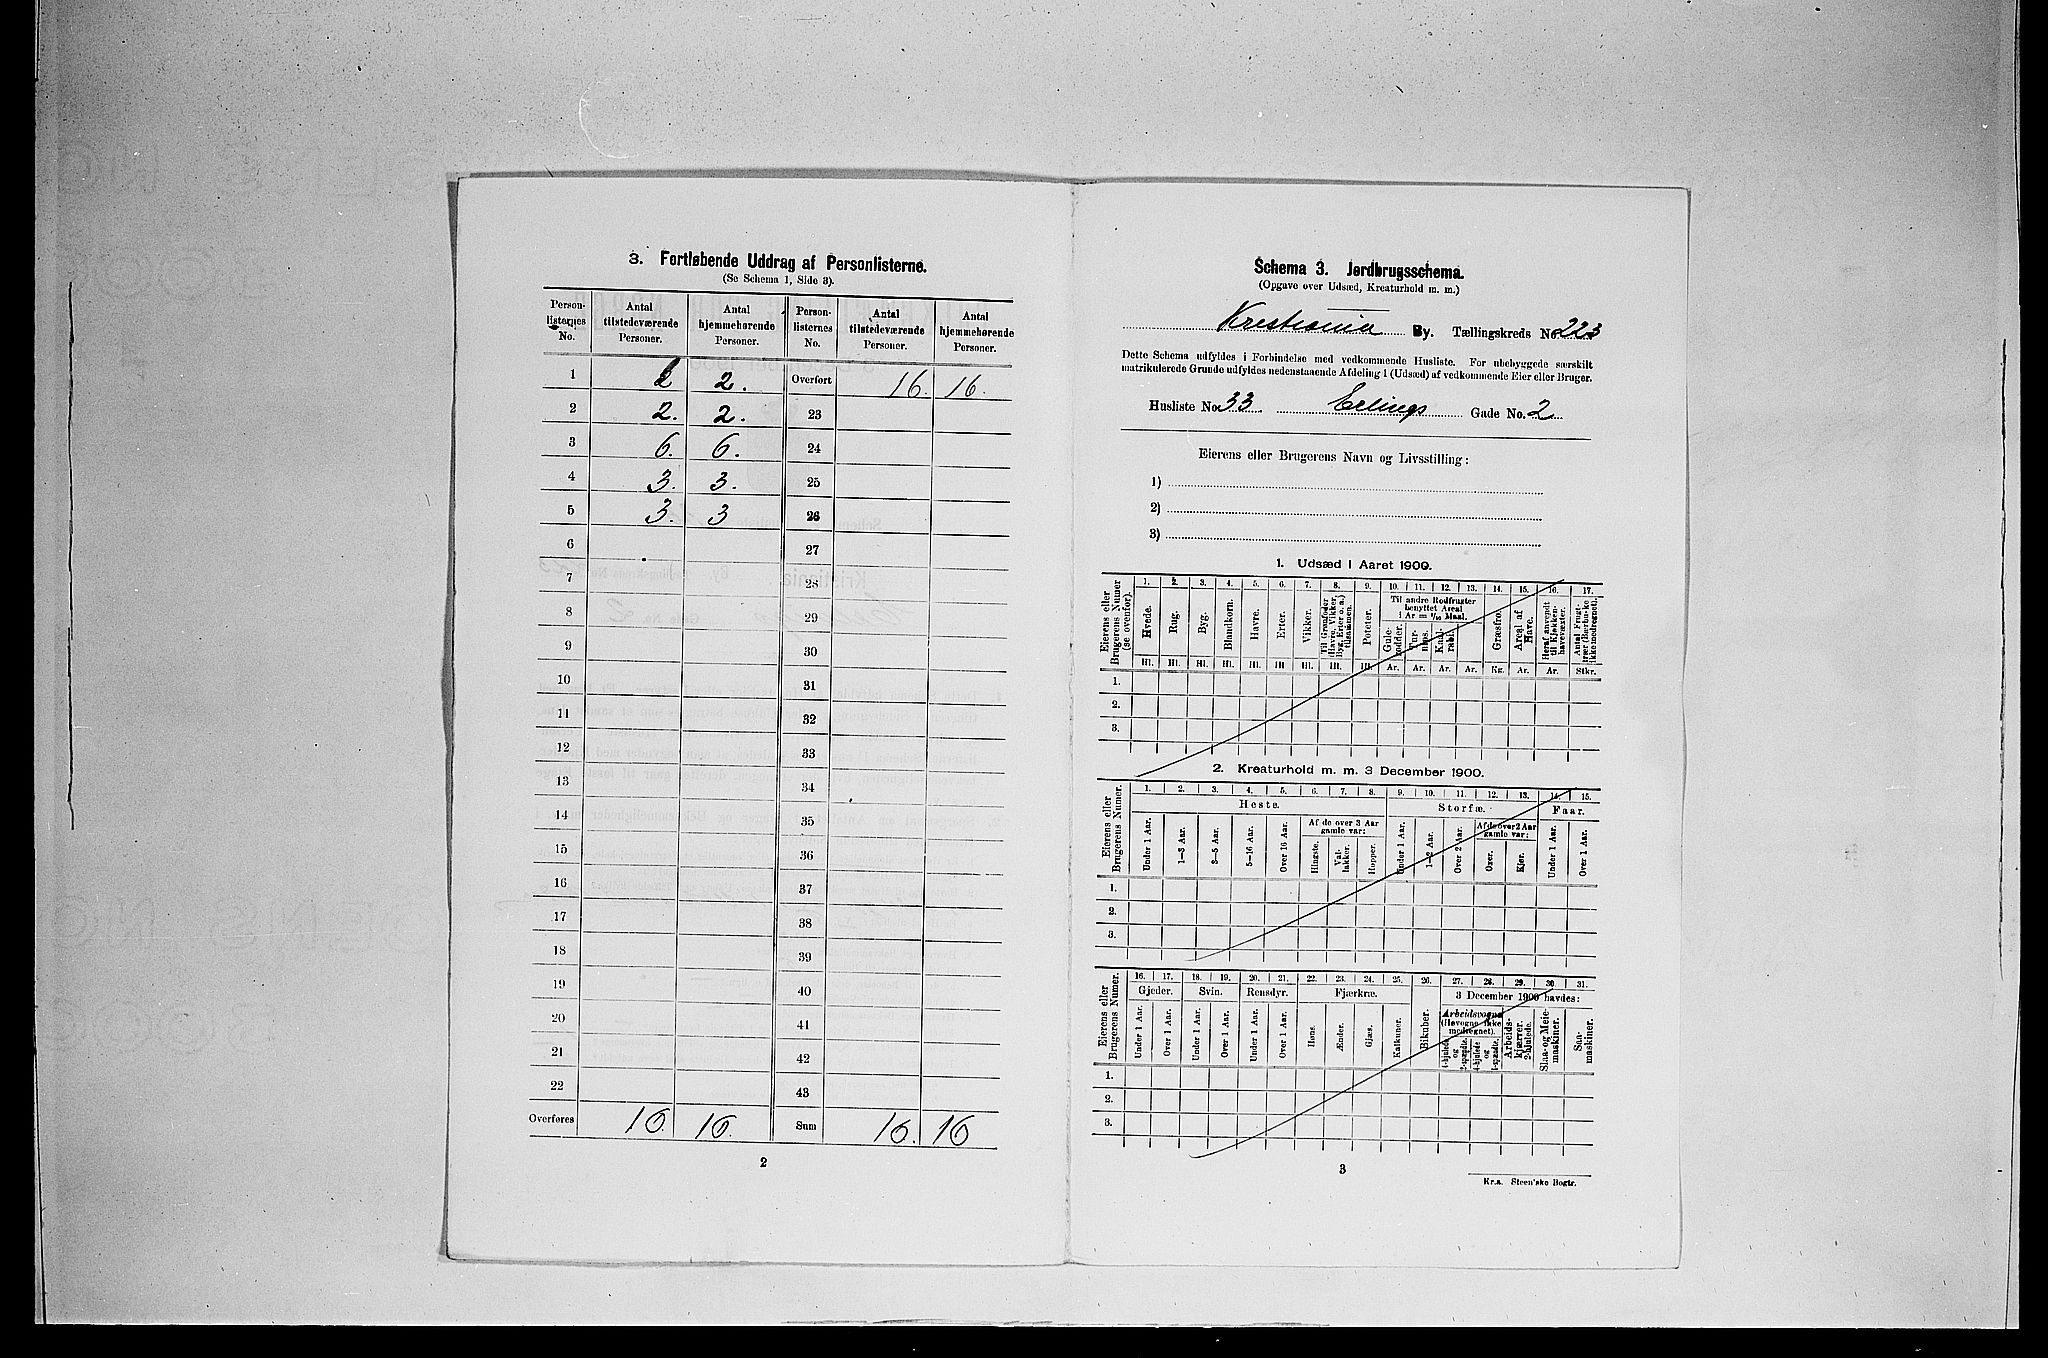 3. Fortløbende Uddrag af Personlisterne.
(Se Schema 1, Side 3).
Person-listernes No. Antal tilstedeværende Personer. Antal hjemmehørende Personer. Person-listernes No. Antal tilstedeværende Personer. Antal hjemmehørende Personer.
1 2 2. Overført 16. 16.
2 2. 2. 23
3 6. 6. 24
4 3. 3. 25
5 3. 3 26
6 27
7 28
8 29
9 30
10 31
11 32
12 33
13 34
14 35
15 36
16 37
17 38
18 39
19 40
20 41
21 42
22 43
Overføres 16. 16. Sum 16. 16
2
Schema 3. Jordbrugsschema.
(Opgave over Udsæd, Kreaturhold m. m.)
Kristiania By. Tællingskreds No. 223
Dette Schema udfyldes i Forbindelse med vedkommende Husliste. For ubebyggede særskilt
matrikulerede Grunde udfyldes nedenstaaende Afdeling 1 (Udsæd) af vedkommende Eier eller Bruger.
Husliste No. 33. Erlings Gade No. 2
Eierens eller Brugerens Navn og Livsstilling:
1)
2)
3)
1. Udsæd i Aaret 1900.
Eierens eller Brugerens Numer (se ovenfor). 1. 2. 3. 4. 5. 6. 7. 8. 9. 10. 11. 12. 13. 14. 15. 16. 17.
Hvede. Rug. Byg. Blandkorn. Havre. Erter. Vikker. Til Grønfoder (Havre, Vikker, Byg, Erter o. a.) tilsammen. Poteter. Til andre Rodfrugter benyttet Areal 1 Ar = 1/10 Maal. Gule-rødder. Tur-nips. Kaal-rabi. Græsfrø. Areal af Have. Heraf anvendt til Kjøkken-havevæxter. Antal Frugt-trær (Bærbuske ikke medregnet).
Hl. Hl. Hl. Hl. Hl. Hl. Hl. Hl. Hl. Ar. Ar. Ar. Ar. Kg. Ar. Ar. Stkr.
1.
2.
3.
2. Kreaturhold m. m. 3 December 1900.
Eierens eller Brugerens Numer. 1. 2. 3. 4. 5. 6. 7. 8. 9. 10. 11. 12. 13. 14. 15.
Heste. Storfæ. Faar.
Af de over 3 Aar gamle var: Af de over 2 Aar gamle var:
Under 1 Aar. 1—3 Aar. 3—5 Aar. 5—16 Aar. Over 16 Aar. Hingste. Val-lakker. Hopper. Under 1 Aar. 1—2 Aar. Over 2 Aar. Oxer. Kjør. Under 1 Aar. Over 1 Aar.
1.
2.
3.
Eierens eller Brugerens Numer. 16. 17. 18. 19. 20. 21. 22. 23. 24. 25. 26. 27. 28. 29. 30. 31.
Gjeder. Svin. Rensdyr. Fjærkræ. 3 December 1900 havdes:
Under 1 Aar. Over 1 Aar. Under 1 Aar. Over 1 Aar. Under 1 Aar. Over 1 Aar. Høns. Ænder. Gjæs. Kalkuner. Bikuber. Arbeidsvogne (Høvogne ikke medregnet). 4-hjulede og 2-spændte. 4-hjulede og 1-spændte. Arbeids-kjærrer, 2-hjulede. Slaa- og Meie-maskiner. Saa-maskiner.
1.
2.
3.
3
Kr.a. Steen'ske Bogtr.